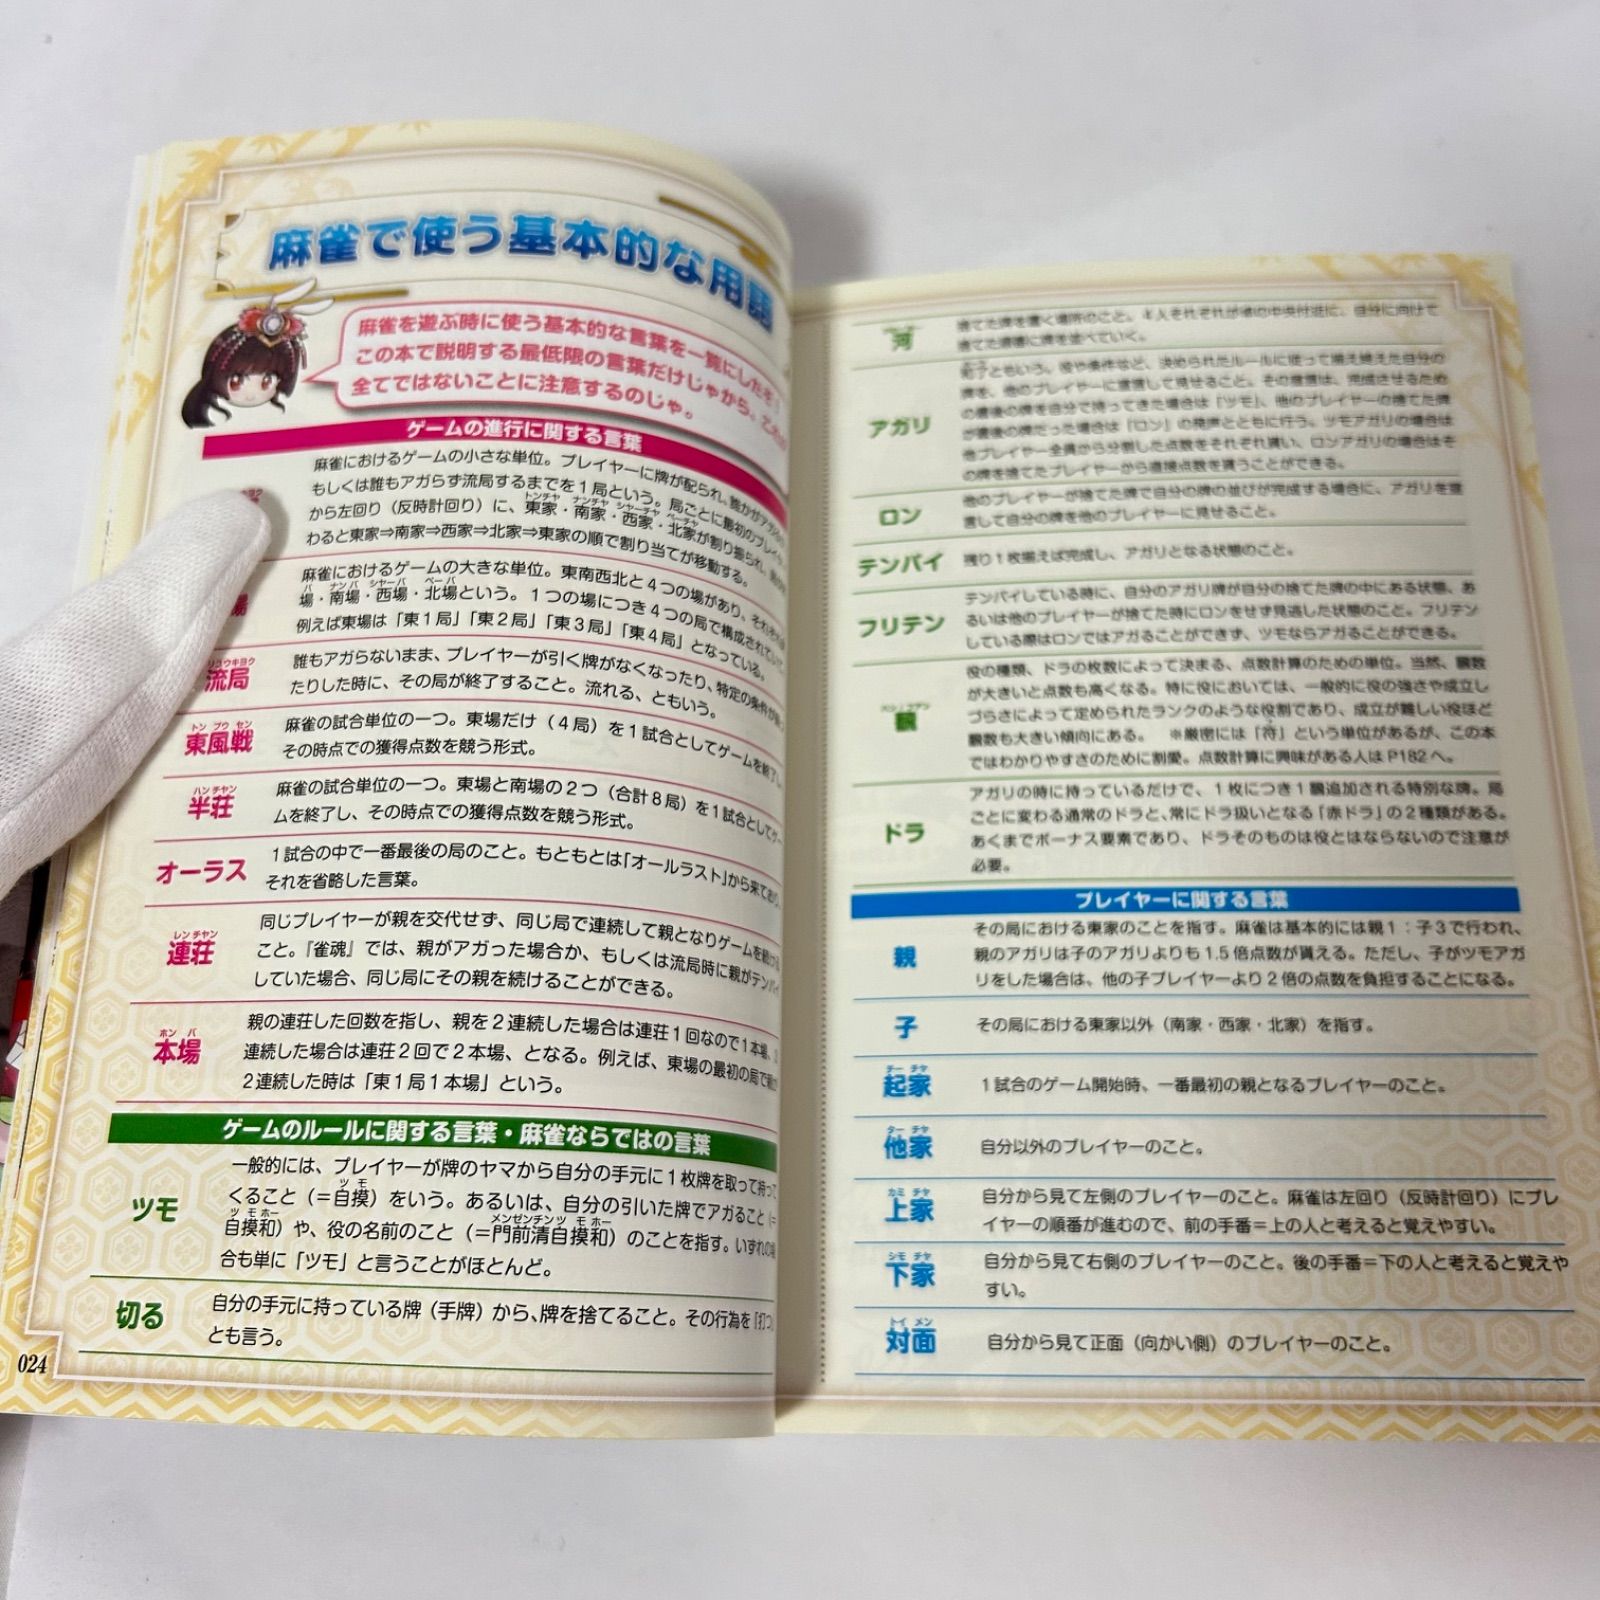 麻雀で使う基本的な用語
麻雀を遊ぶ時に使う基本的な言葉を一覧にしたぞ！
この本で説明する最低限の言葉だけじゃから、
全てではないことに注意するのじゃ。
ゲームの進行に関する言葉
麻雀におけるゲームの小さな単位。プレイヤーに牌が配られ、誰かがアガる
もしくは誰もアガらず流局するまでを１局という。局ごとに最初のプレイヤー
から左回り（反時計回り）に、東家・南家・西家・北家が割り振られ、
トンチャ ナンチャ シャーチャ ペーチャ
わると東家⇒南家⇒西家⇒北家⇒東家の順で割り当てが移動する。
場
麻雀におけるゲームの大きな単位。東南西北と４つの場があり、それぞれ
場・南場・西場・北場という。１つの場につき４つの局で構成されていて、
バ ナンバ シャーバ ペーバ
例えば東場は「東１局」「東２局」「東３局」「東４局」となっている。
リュウキョク
流局
誰もアガらないまま、プレイヤーが引く牌がなくなったり、特定の条件が
たりした時に、その局が終了すること。流れる、ともいう。
トン プウ セン
東風戦
麻雀の試合単位の一つ。東場だけ（４局）を１試合としてゲームを終了し、
その時点での獲得点数を競う形式。
ハン チャン
半荘
麻雀の試合単位の一つ。東場と南場の２つ（合計８局）を１試合としてゲー
ムを終了し、その時点での獲得点数を競う形式。
オーラス
１試合の中で一番最後の局のこと。もともとは「オールラスト」から来ており、
それを省略した言葉。
レン チャン
連荘
同じプレイヤーが親を交代せず、同じ局で連続して親となりゲームを続ける
こと。『雀魂』では、親がアガった場合か、もしくは流局時に親がテンパイ
していた場合、同じ局にその親を続けることができる。
ホン バ
本場
親の連荘した回数を指し、親を２連続した場合は連荘１回なので１本場、
連続した場合は連荘２回で２本場、となる。例えば、東場の最初の局で
２連続した時は「東１局１本場」という。
ゲームのルールに関する言葉・麻雀ならではの言葉
ツモ
一般的には、プレイヤーが牌のヤマから自分の手元に１枚牌を取って持って
くること（＝自摸）をいう。あるいは、自分の引いた牌でアガること（＝
ツ モ
自摸和）や、役の名前のこと（＝門前清自摸和）のことを指す。いずれの場
ツ モ ホー メンゼンチン ツ モ ホー
合も単に「ツモ」と言うことがほとんど。
切る
自分の手元に持っている牌（手牌）から、牌を捨てること。その行為を「打つ」
とも言う。
024
河
捨てた牌を置く場所のこと。４人それぞれが卓の中央付近に、自分に向けて
捨てた順番に牌を並べていく。
アガリ
和了ともいう。役や条件など、決められたルールに従って揃え終えた自分の
牌を、他のプレイヤーに宣言して見せること。その宣言は、完成させるため
の最後の牌を自分で持ってきた場合は「ツモ」、他のプレイヤーの捨てた牌
が最後の牌だった場合は「ロン」の発声とともに行う。ツモアガリの場合は
他プレイヤー全員から分割した点数をそれぞれ貰い、ロンアガリの場合はそ
の牌を捨てたプレイヤーから直接点数を貰うことができる。
ロン
他のプレイヤーが捨てた牌で自分の牌の並びが完成する場合に、アガリを宣
言して自分の牌を他のプレイヤーに見せること。
テンパイ
残り１枚揃えば完成し、アガリとなる状態のこと。
フリテン
テンパイしている時に、自分のアガリ牌が自分の捨てた牌の中にある状態、あ
るいは他のプレイヤーが捨てた時にロンをせず見逃した状態のこと。フリテン
している際はロンではアガることができず、ツモならアガることができる。
飜
役の種類、ドラの枚数によって決まる、点数計算のための単位。当然、飜数
が大きいと点数も高くなる。特に役においては、一般的に役の強さや成立し
づらさによって定められたランクのような役割であり、成立が難しい役ほど
飜数も大きい傾向にある。 ※厳密には「符」という単位があるが、この本
ではわかりやすさのために割愛。点数計算に興味がある人は P182 へ。
ドラ
アガリの時に持っているだけで、１枚につき１飜追加される特別な牌。局
ごとに変わる通常のドラと、常にドラ扱いとなる「赤ドラ」の２種類がある。
あくまでボーナス要素であり、ドラそのものは役とはならないので注意が
必要。
プレイヤーに関する言葉
親
その局における東家のことを指す。麻雀は基本的には親１：子３で行われ、
親のアガリは子のアガリよりも 1.5 倍点数が貰える。ただし、子がツモアガ
リをした場合は、他の子プレイヤーより２倍の点数を負担することになる。
子
その局における東家以外（南家・西家・北家）を指す。
チー チャ
起家
１試合のゲーム開始時、一番最初の親となるプレイヤーのこと。
ター チャ
他家
自分以外のプレイヤーのこと。
カミ チャ
上家
自分から見て左側のプレイヤーのこと。麻雀は左回り（反時計回り）にプレ
イヤーの順番が進むので、前の手番＝上の人と考えると覚えやすい。
シモ チャ
下家
自分から見て右側のプレイヤーのこと。後の手番＝下の人と考えると覚えや
すい。
トイ メン
対面
自分から見て正面（向かい側）のプレイヤーのこと。